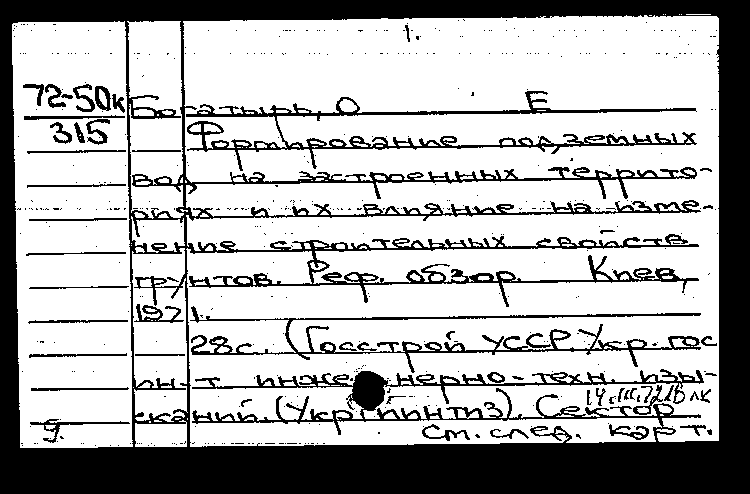 1.
72-50к Богатырь, О Е
315 Формирование подземных
вод на застроенных террито-
риях и их влияние на изме-
нение строительных свойств
грунтов. Реф. обзор. Киев,
1971.
28с. (Госстрой УССР. Укр. гос
ин-т инженерно-техн. изы-
сканий. (УкрГИИНТИЗ). Сектор
9. см. след. карт.